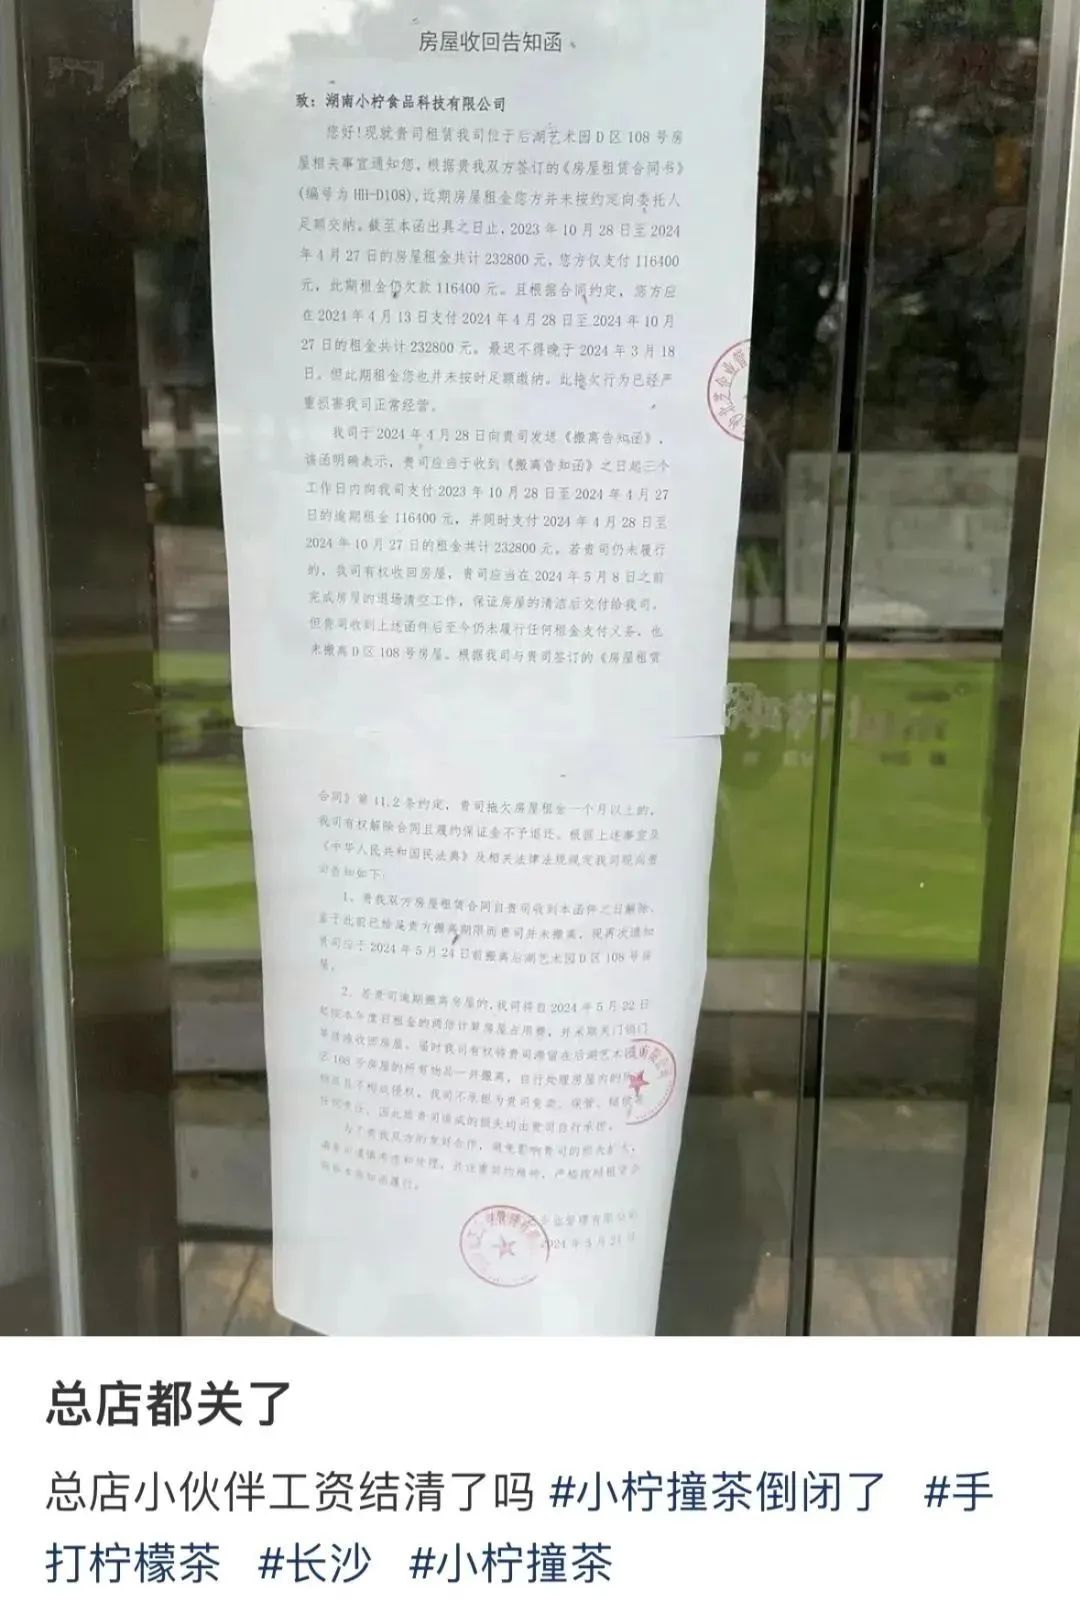 房屋收回告知函
致：湖南小柠食品科技有限公司
您好！现就贵司租赁我司位于后湖艺术园D区108号房
屋相关事宜通知您。根据贵我双方签订的《房屋租赁合同书》
(编号为HH-D108),近期房屋租金您方并未按约定向委托人
足额交纳。截至本函出具之日止，2023年10月28日至2024
年4月27日的房屋租金共计232800元，您方仅支付116400
元，此期租金仍欠款116400元。且根据合同约定，您方应
在2024年4月13日支付2024年4月28日至2024年10月
27日的租金共计232800元。最迟不得晚于2024年3月18
日。但此期租金您也并未按时足额缴纳。此拖欠行为已经严
重损害我司正常经营。
我司于2024年4月28日向贵司发送《搬离告知函》，
该函明确表示，贵司应当于收到《搬离告知函》之日起三个
工作日内向我司支付2023年10月28日至2024年4月27
日的逾期租金116400元，并同时支付2024年4月28日至
2024年10月27日的租金共计232800元。若贵司仍未履行
的，我司有权收回房屋，贵司应当在2024年5月8日之前
完成房屋的退场清空工作，保证房屋的清洁后交付给我司。
但贵司收到上述函件后至今仍未履行任何租金支付义务，也
未搬离D区108号房屋。根据我司与贵司签订的《房屋租赁
合同》第11.2条约定，贵司拖欠房屋租金一个月以上的，
我司有权解除合同且履约保证金不予退还。根据上述事宜及
《中华人民共和国民法典》及相关法律法规规定我司现向贵
司告知如下：
1、贵我双方房屋租赁合同自贵司收到本函件之日解除，
鉴于此前已给足贵方搬离期限而贵司并未搬离，现再次通知
贵司应于2024年5月24日前搬离后湖艺术园D区108号房
屋。
2、若贵司逾期搬离房屋的，我司将自2024年5月22日
起按本年度日租金的两倍计算房屋占用费，并采取关门锁门
等措施收回房屋。届时我司有权将贵司滞留在后湖艺术园
区108号房屋的所有物品一并搬离，自行处理房屋内的
物品且不构成侵权，我司不承担为贵司
任何责任。因此给贵司造成的损失均由贵司自行承担。
为了贵我双方的友好合作，避免影响贵司的损失扩大，
企业管理有限公司
总店都关了
总店小伙伴工资结清了吗 #小柠撞茶倒闭了 #手
打柠檬茶 #长沙 #小柠撞茶